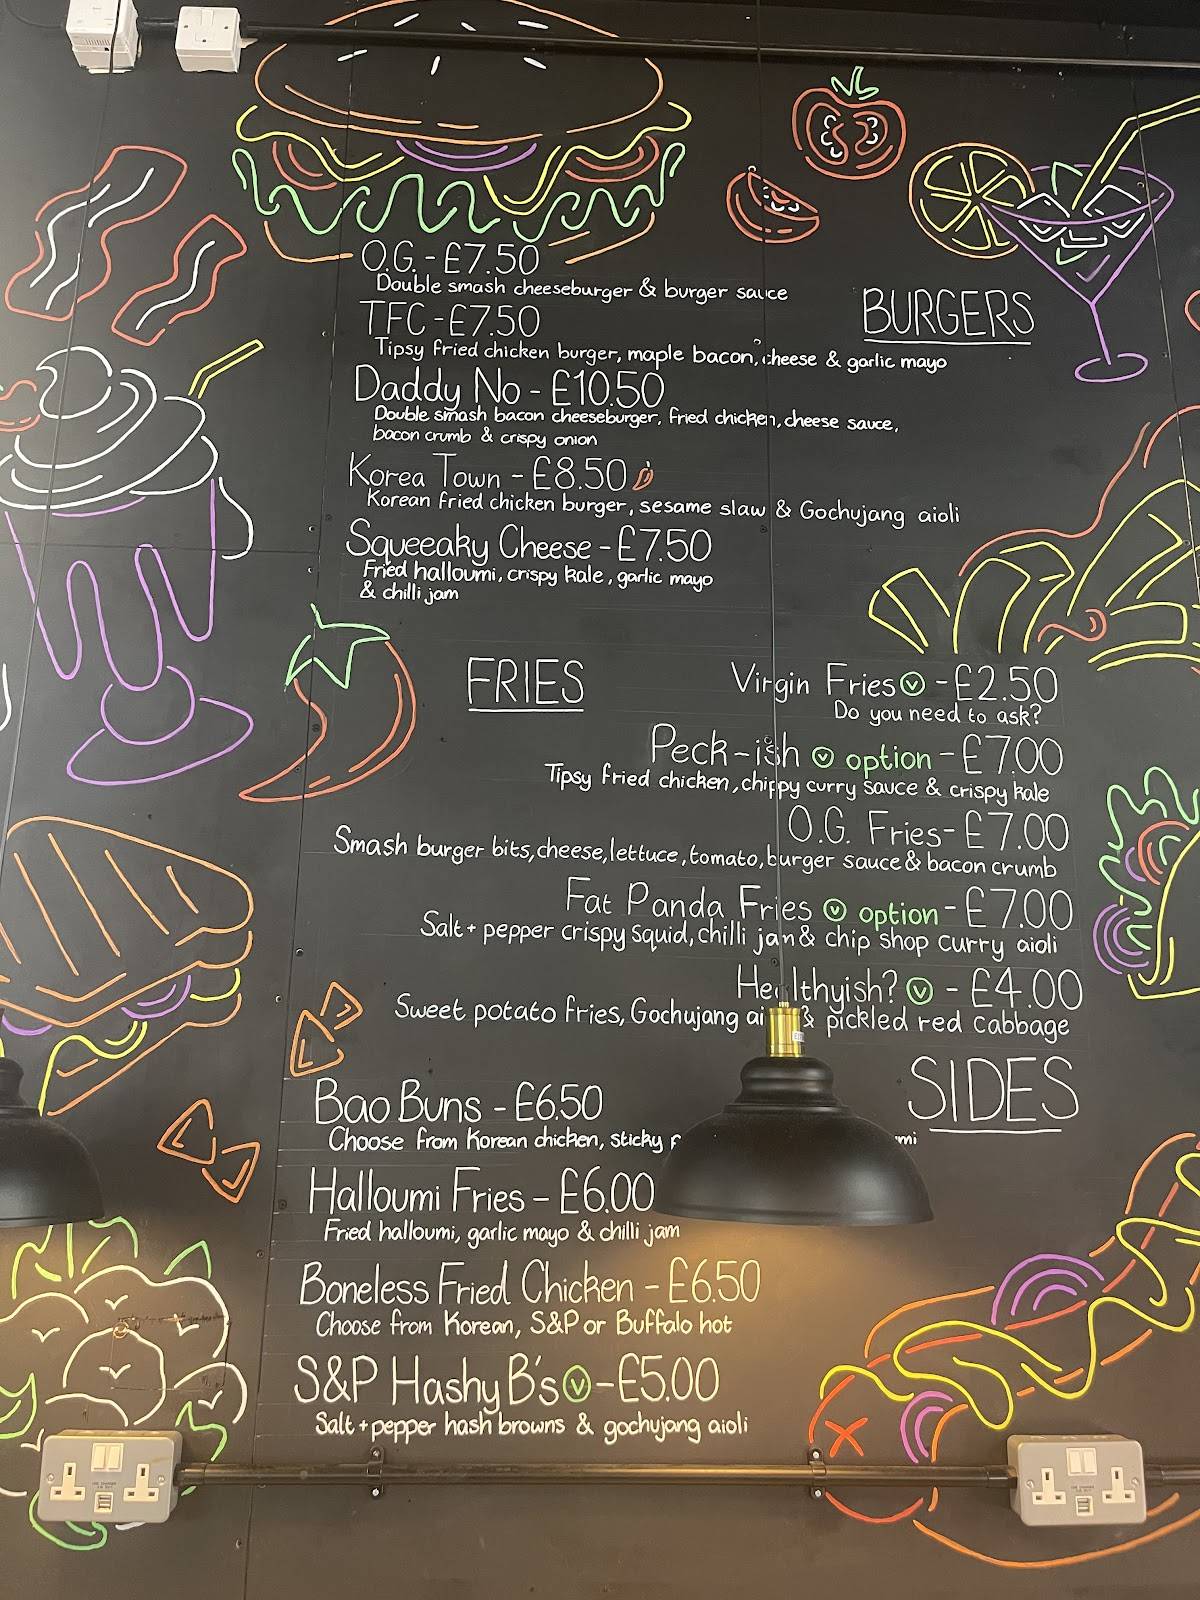 O.G. - £7.50
Double smash cheeseburger & burger sauce
BURGERS
TFC - £7.50
Tipsy fried chicken burger, maple bacon, cheese & garlic mayo
Daddy No - £10.50
Double smash bacon cheeseburger, fried chicken, cheese sauce,
bacon crumb & crispy onion
Korea Town - £8.50
Korean fried chicken burger, sesame slaw & Gochujang aioli
Squeeaky Cheese - £7.50
Fried halloumi, crispy kale, garlic mayo
& chilli jam
FRIES
Virgin Fries V - £2.50
Do you need to ask?
Peck-ish V option - £7.00
Tipsy fried chicken, chippy curry sauce & crispy kale
O.G. Fries - £7.00
Smash burger bits, cheese, lettuce, tomato, burger sauce & bacon crumb
Fat Panda Fries V option - £7.00
Salt + pepper crispy squid, chilli jam & chip shop curry aioli
Healthyish? V - £4.00
Sweet potato fries, Gochujang & pickled red cabbage
SIDES
Bao Buns - £6.50
Choose from Korean chicken, sticky
Halloumi Fries - £6.00
Fried halloumi, garlic mayo & chilli jam
Boneless Fried Chicken - £6.50
Choose from Korean, S&P or Buffalo hot
S&P Hashy B's V - £5.00
Salt + pepper hash browns & gochujang aioli